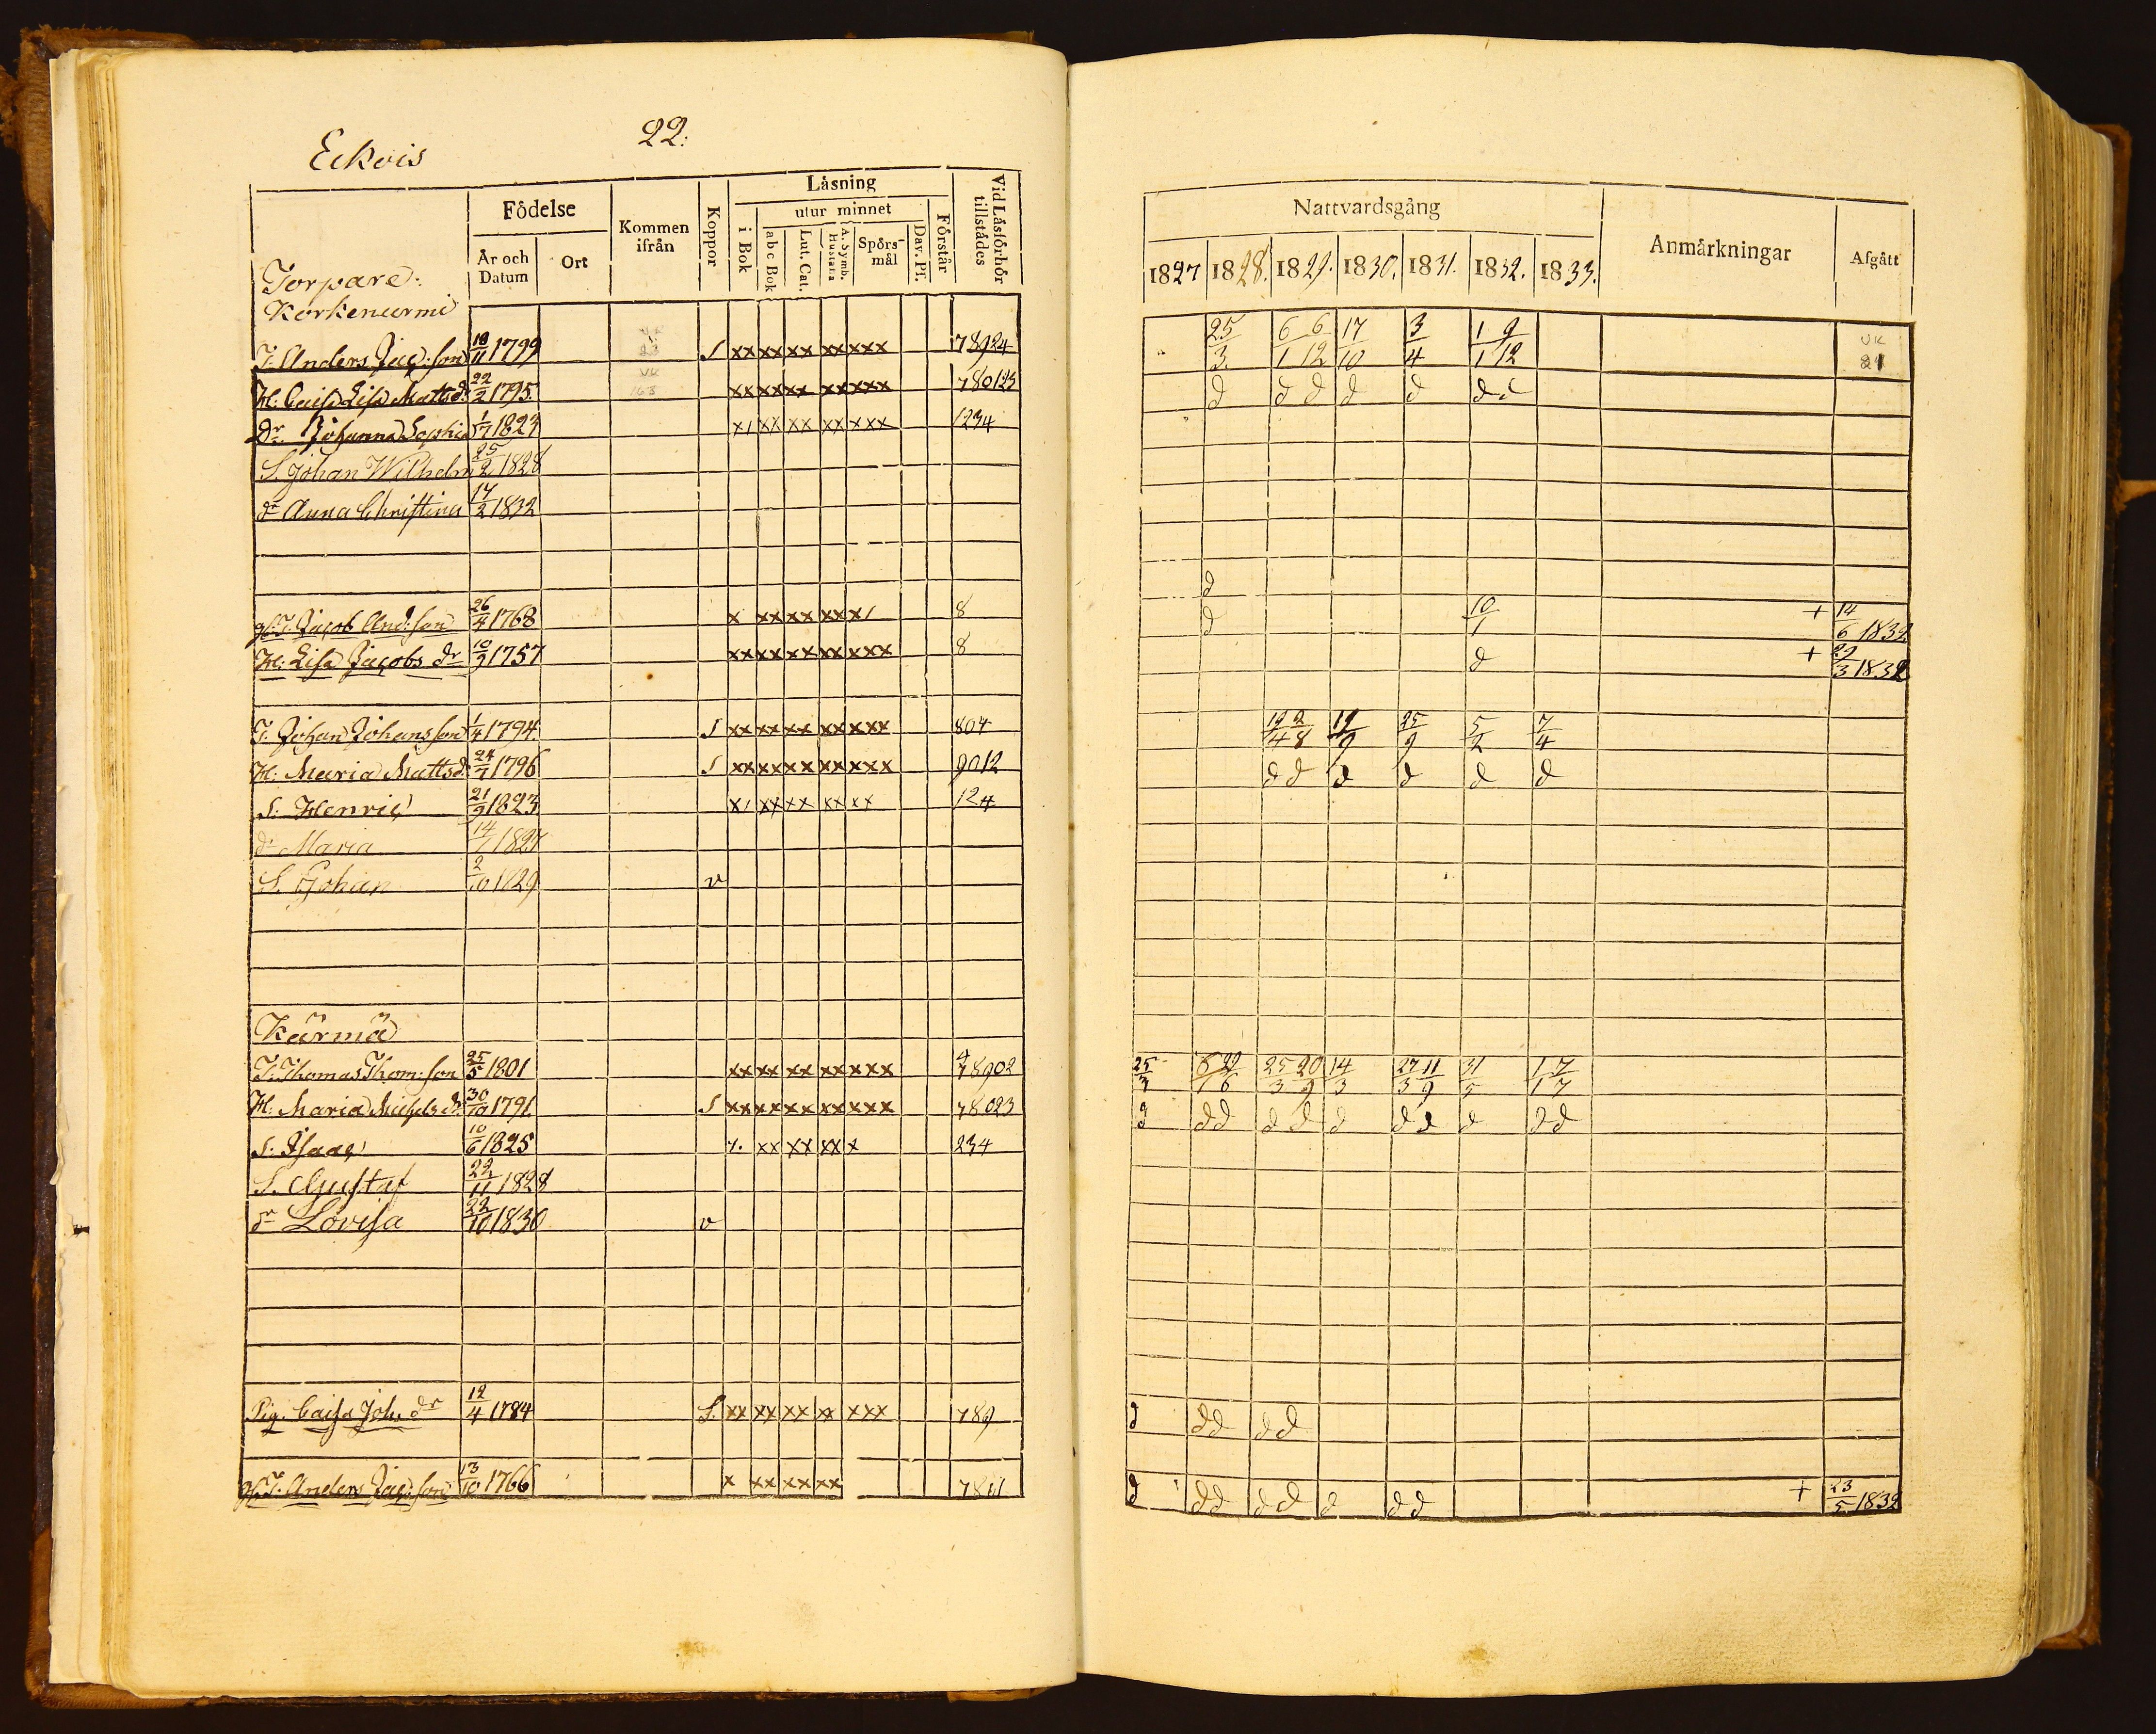 Eckois 22.
Födelse Kommen ifrån Koppor Läsning Vid Läsförhör tillstådes
År och Datum Ort i Bok utur minnet Förstår
a b c Bok Lut. Cat. A. Symb. Hustafla Spörs-mål Dav. Ps.
Torpare:
Korkenurmi
T. Anders Jac:son 18/11 1799 S xx xx xx xx xxx 78924
H: Caisa Lisa Matts d: 22/2 1795. xx xx xx xx xxx 780123
Dr. Johanna Sophia 1/7 1823 x/ xx xx xx xxx 1234
S. Johan Wilhelm 25/2 1828
dr Anna Christina 17/2 1832
gl. T. Jacob And:son 26/4 1768 x xx xx xx x/ 8
H: Lisa Jacobs dr 10/9 1757 xx xx xx xx xxx 8
T. Johan Johansson 1/4 1794. S xx xx xx xx xxx 804
H: Maria Matts d. 24/7 1796 S xx xx xx xx xxx 9012
S: Henric 21/9 1823 x/ xx xx xx xx 124
dr Maria 14/7 1827
S. Johan 2/10 1829 v
Kärmä
T. Thomas Thom:son 25/5 1801 xx xx xx xx xxx 4 78902
H: Maria Michels dr 30/10 1791 S xx xx xx xx xxx 78023
S. Isaac 10/6 1825 x. xx xx xx x 234
S. Gustaf 22/11 1828
dr Lovisa 22/10 1830 v
Pig. Caisa Joh. dr 12/4 1784 S. xx xx xx xx xxx 789
gl. T. Anders Jac:son 13/10 1766 x xx xx xx 7801
Nattvardsgång Anmärkningar Afgått
1827 1828. 1829. 1830. 1831. 1832. 1833.
25/3 6/1 6/12 17/10 3/4 1/1 9/12 UK 21
d d d d d d d
d
d 10/1 + 14/6 1832
d + 29/3 1832
12/4 2/8 19/9 25/9 5/2 7/4
d d d d d d
25/3 6/1 22/6 25/3 20/9 14/3 27/3 11/9 31/5 1/1 7/7
d dd d d d d d d dd
d dd d d
d dd d d d d d + 23/5 1832